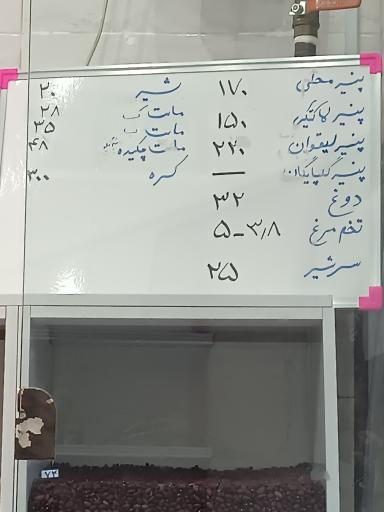 پنیر محلی ۱۷۰ شیر ۲۰
پنیر کاکتیل ۱۵۰ ماست ۲۸
پنیر لیقوان ۲۲۰ ماست ۳۵
پنیر گلپایگان — ماست چکیده ۴۸
دوغ ۳۲ کره ۳۰۰
تخم مرغ ۳٫۸-۵
سرشیر ۲۵
۷۲